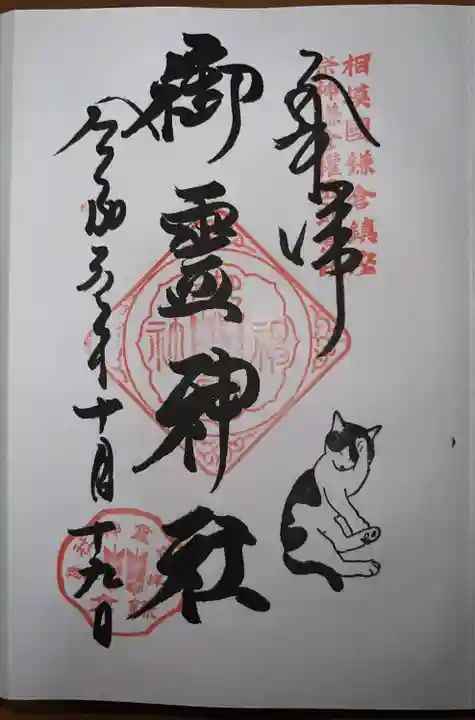 相模國鎌倉鎮座
奉拝
御霊神社
令和六年十月十九日